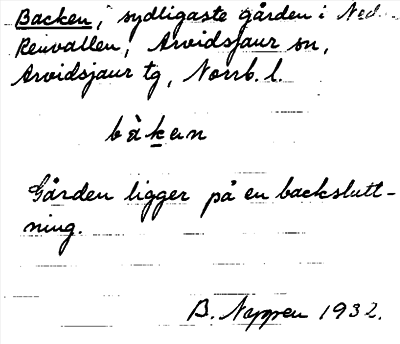 Backen, sydligaste gården i Ned.
Renvallen, Arvidsjaur sn,
Arvidsjaur tg, Norrb. l.
bàkan
Gården ligger på en backslutt-
ning.
B. Nappen 1932.